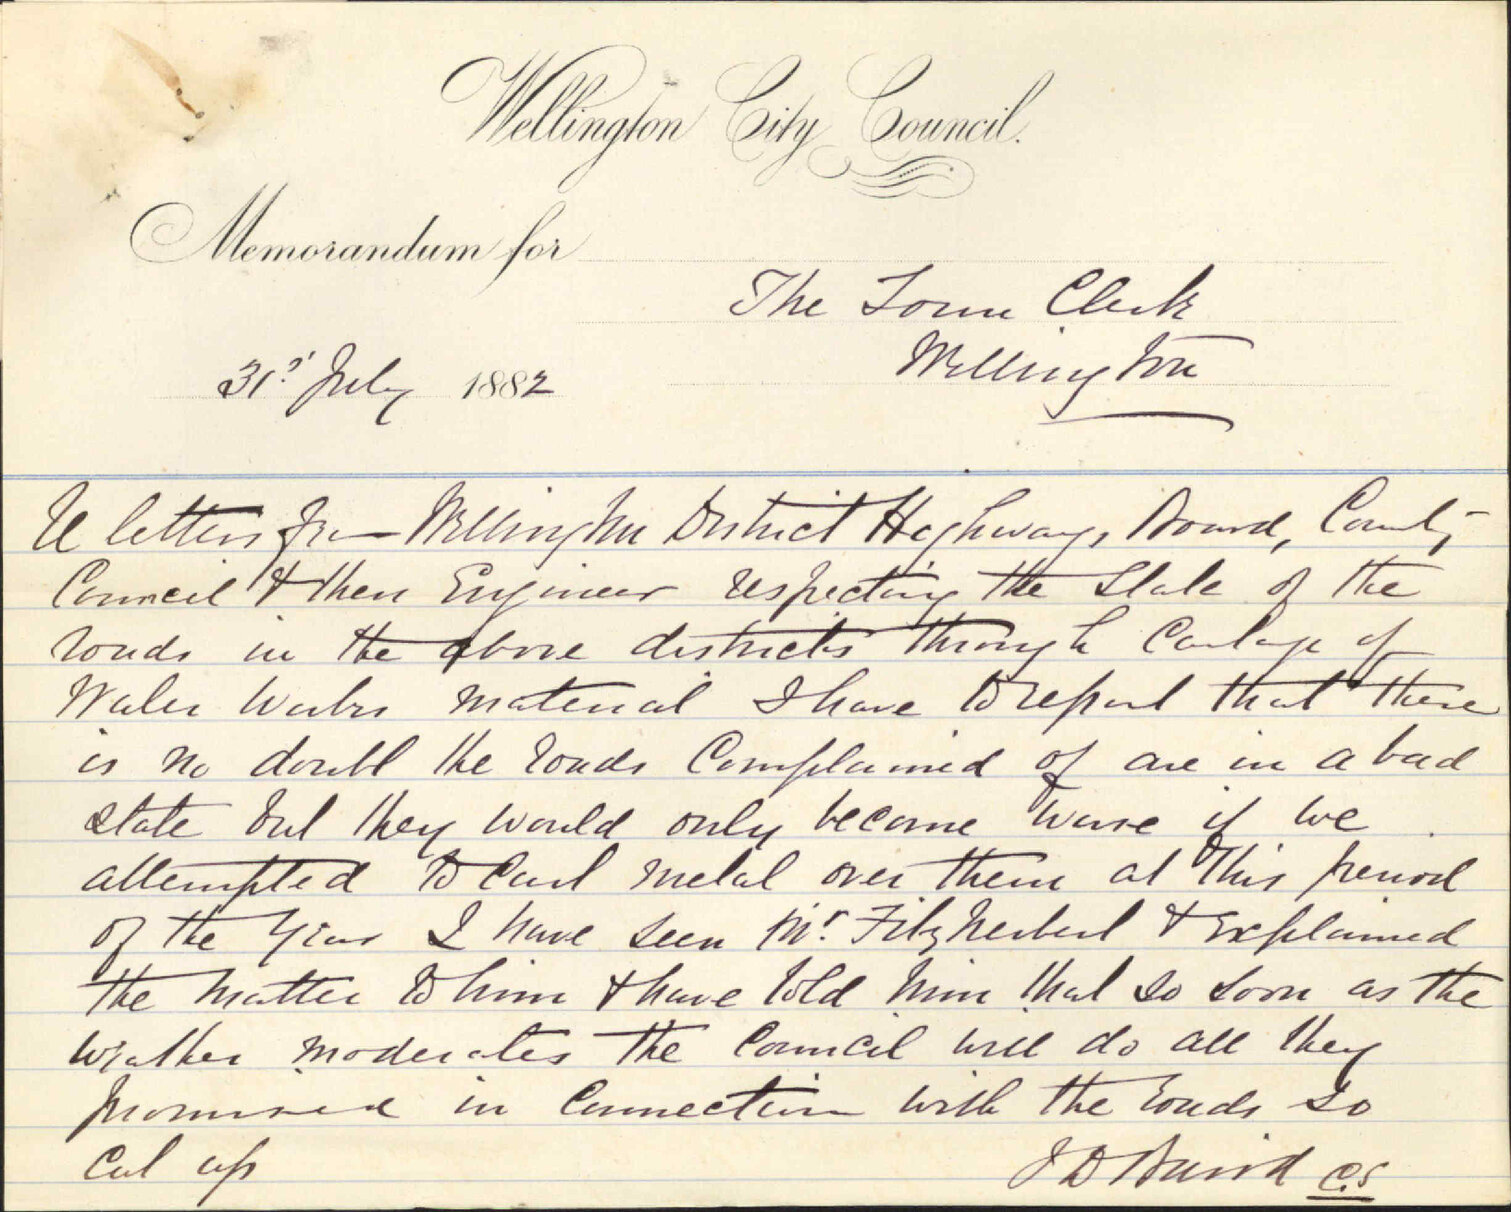 Wellington City Council.
Memorandum for
The Town Clerk
Wellington
31st July 1882
Re letters from Wellington District Highways, Board, County
Council & their Engineer respecting the state of the
roads in the above districts through Cartage of
Water Works material I have to report that there
is no doubt the roads Complained of are in a bad
state but they would only become worse if we
attempted to Cart metal over them at this period
of the Year I have seen Mr. Fitzherbert & Explained
the matter to him & have told him that so soon as the
weather moderates the Council will do all they
promised in Connection with the roads so
Cut up
J D Baird C.S